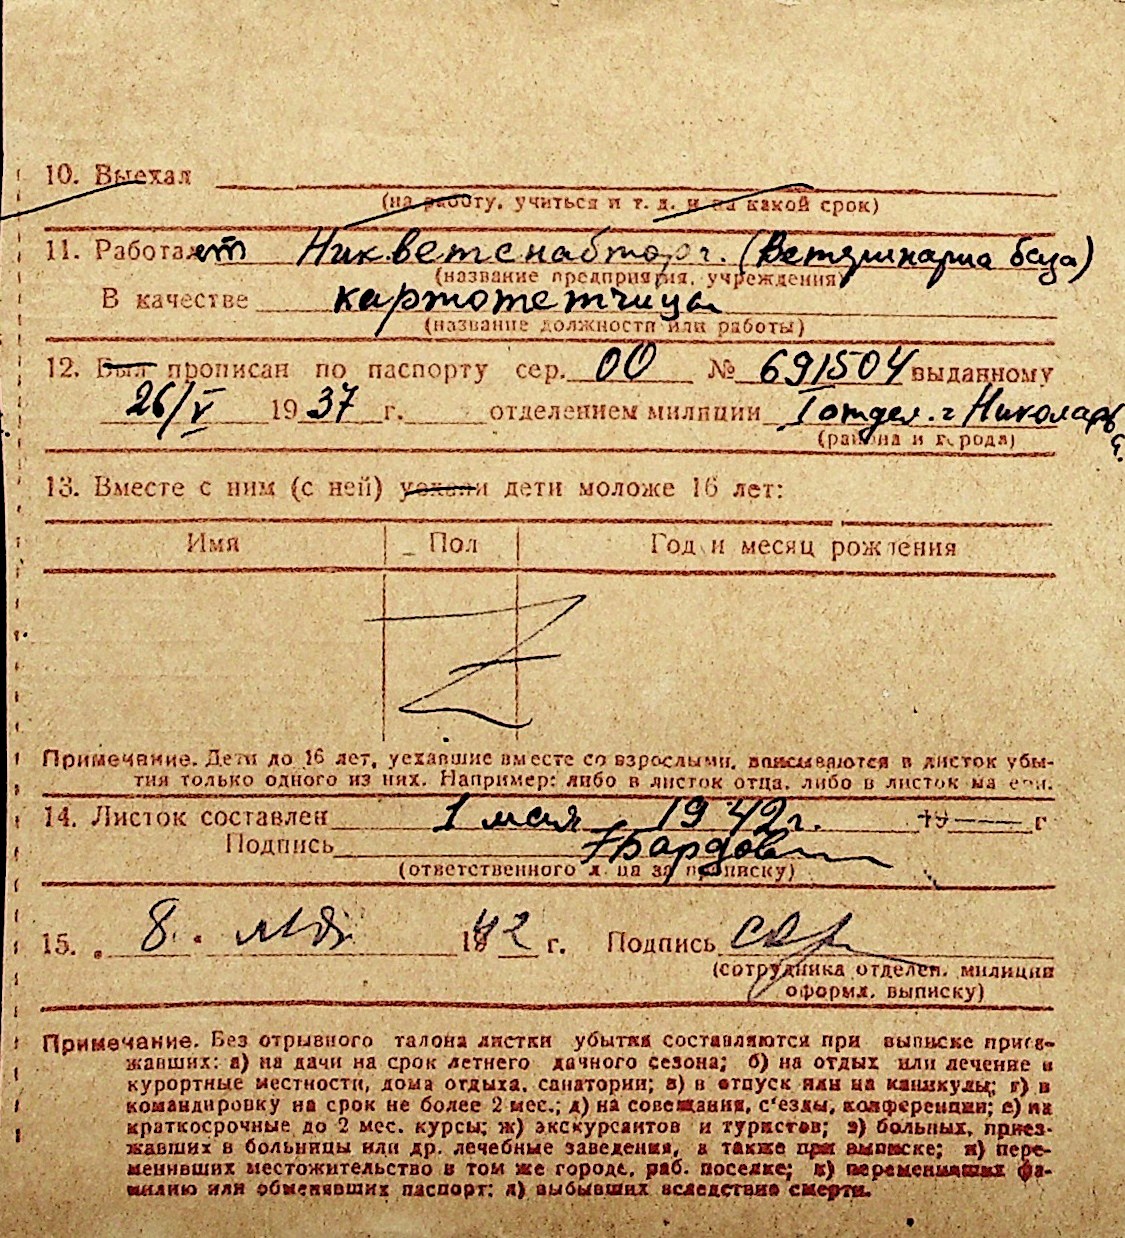 10. Выехал
(на работу, учиться и т. д. и на какой срок)
11. Работает Никветснабторг. (Ветеринарна база)
(название предприятия, учреждения)
В качестве картотетчица
(название должности или работы)
12. Был прописан по паспорту сер. 00 № 691504 выданному
26/V 1937 г. отделением милиции I отдел. г Николаев
(района и города)
13. Вместе с ним (с ней) уехали дети моложе 16 лет:
Имя Пол Год и месяц рождения
Z
Примечание. Дети до 16 лет, уехавшие вместе со взрослыми, вписываются в листок убы-
тия только одного из них. Например: либо в листок отца, либо в листок матери.
14. Листок составлен 1 мая 1942 г. 19 г
Подпись
(ответственного лица за прописку)
15. 8. 1942 г. Подпись
(сотрудника отделен. милиции
оформл. выписку)
Примечание. Без отрывного талона листки убытия составляются при выписке приез-
жавших: а) на дачи на срок летнего дачного сезона; б) на отдых или лечение в
курортные местности, дома отдыха, санатории; в) в отпуск или на каникулы; г) в
командировку на срок не более 2 мес.; д) на совещания, с'езды, конференции; е) на
краткосрочные до 2 мес. курсы; ж) экскурсантов и туристов; з) больных, приез-
жавших в больницы или др. лечебные заведения, а также при выписке; и) пере-
менивших местожительство в том же городе, раб. поселке; к) переменивших фа-
милию или обменявших паспорт; л) выбывших вследствие смерти.